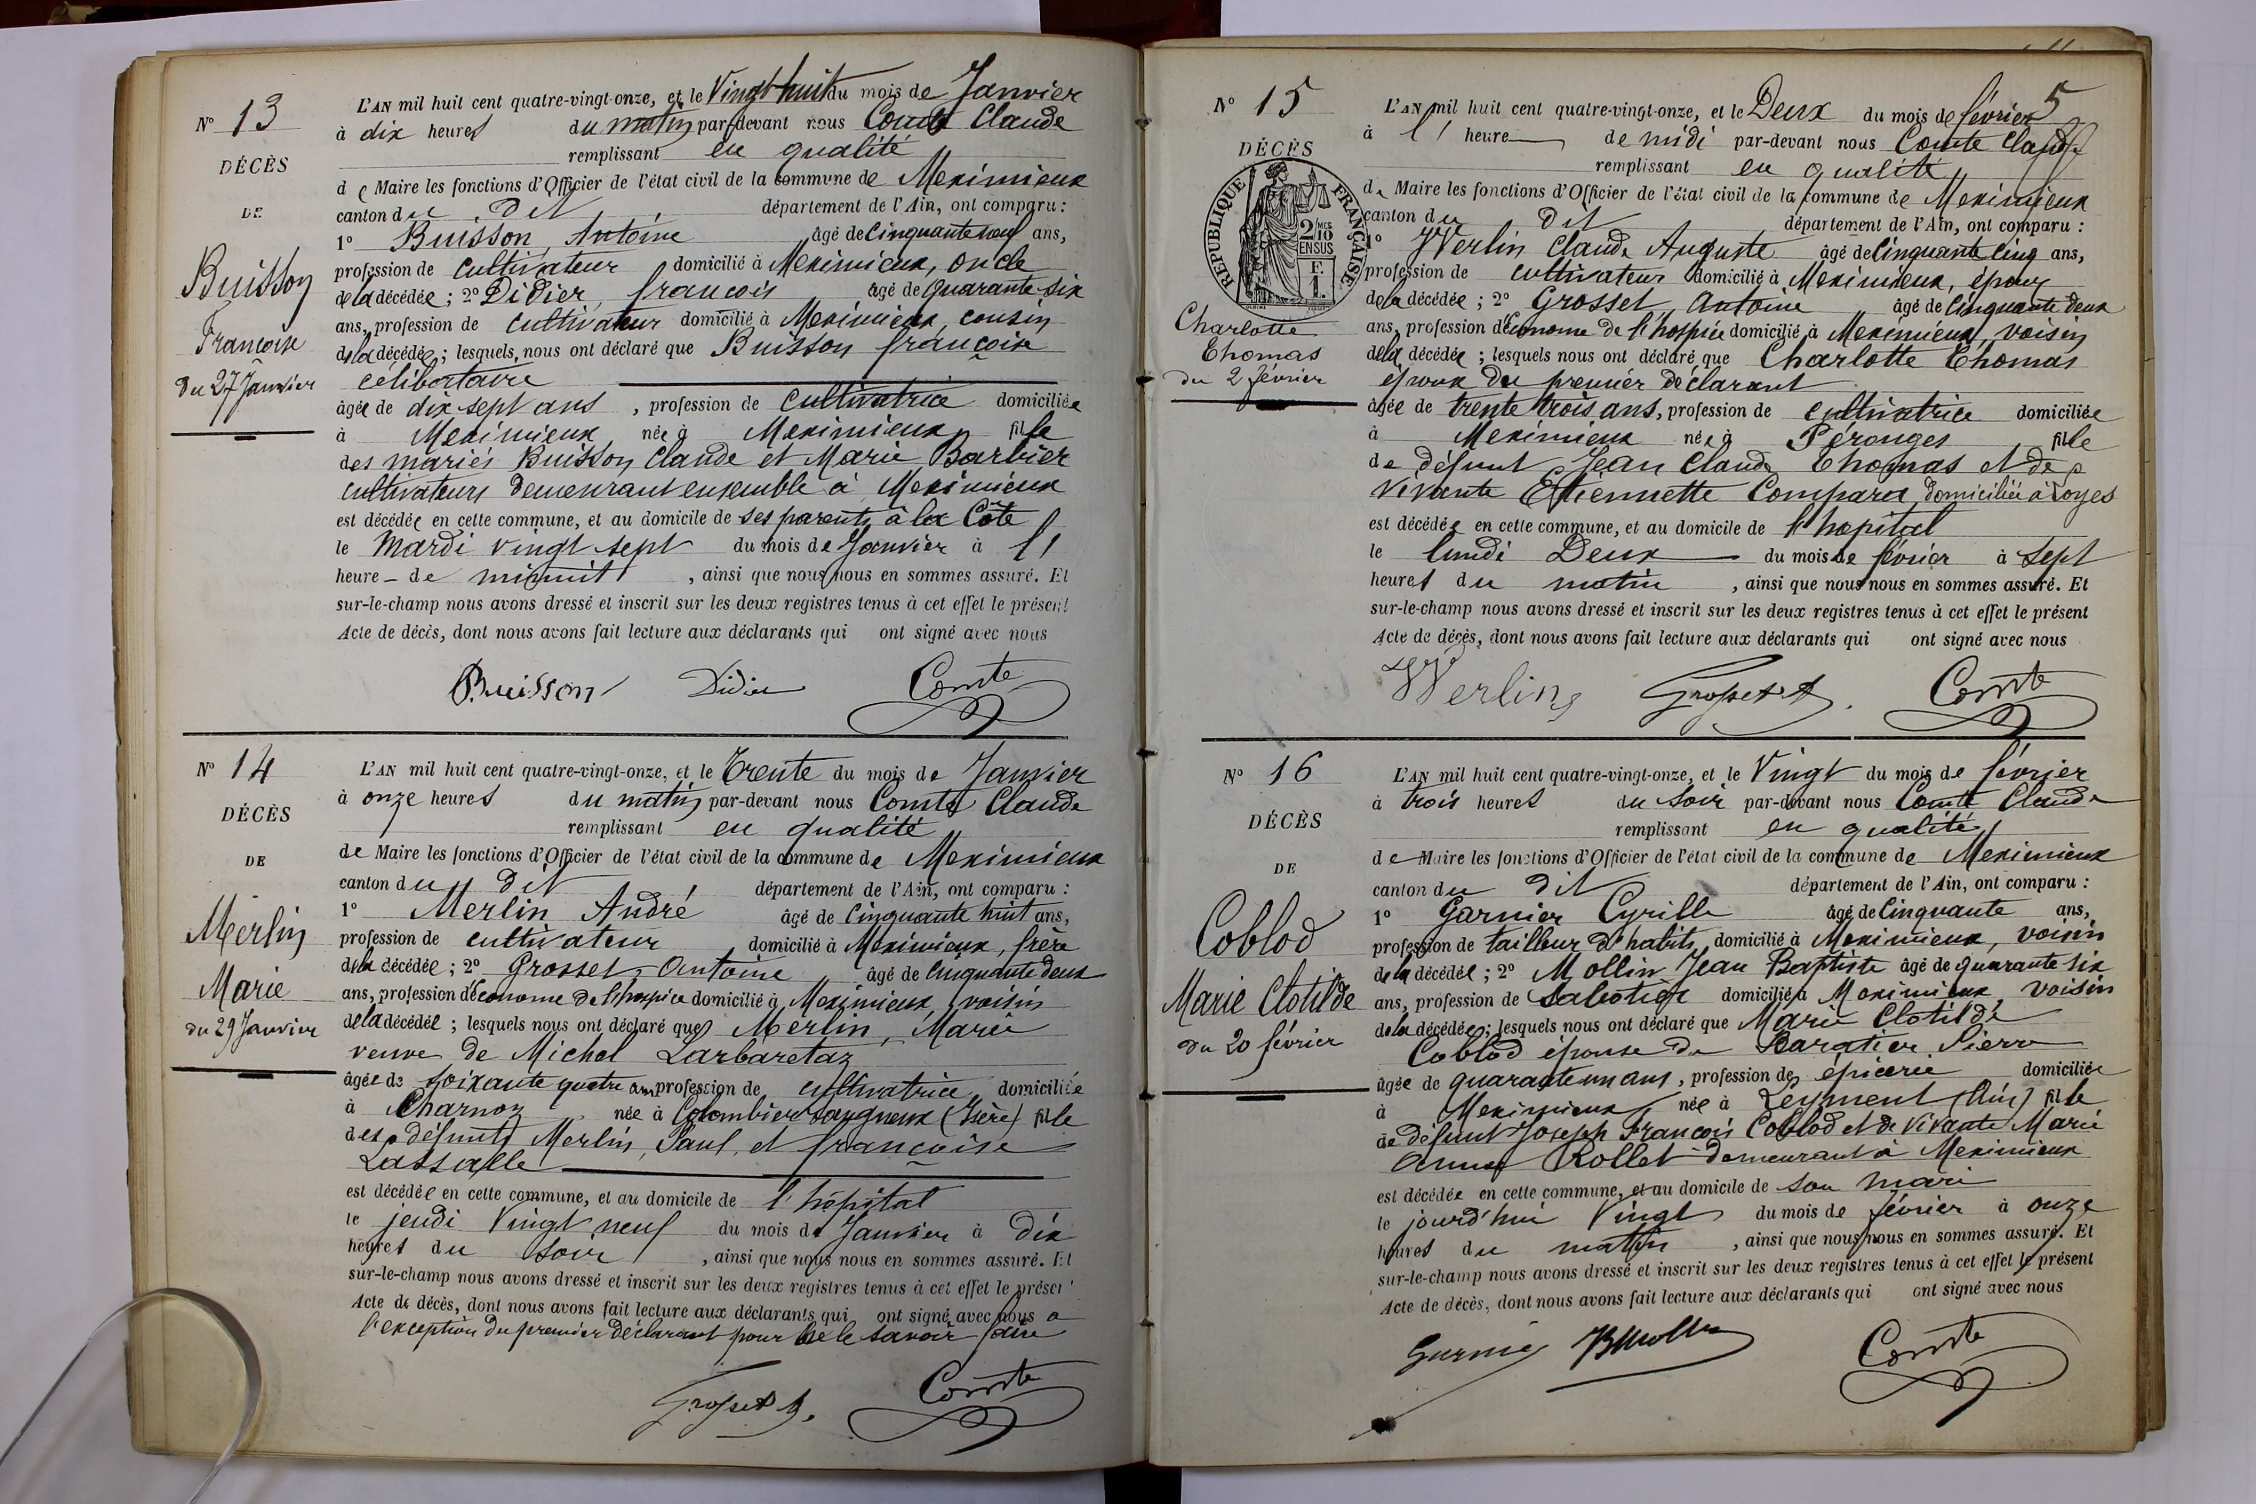 N° 13
DÉCÈS
DE
Buisson
Françoise
du 27 Janvier
L'AN mil huit cent quatre-vingt-onze, et le Vingt huit du mois de Janvier
à dix heures du matin par-devant nous Comte Claude
remplissant en qualité
de Maire les fonctions d'Officier de l'état civil de la commune de Meximieux
canton du dit département de l'Ain, ont comparu :
1° Buisson, Antoine âgé de Cinquante neuf ans,
profession de cultivateur domicilié à Meximieux, oncle
de la décédée ; 2° Didier, françois âgé de quarante six
ans, profession de cultivateur domicilié à Meximieux, cousin
de la décédée ; lesquels nous ont déclaré que Buisson françoise
célibataire
âgée de dix sept ans, profession de cultivatrice domiciliée
à Meximieux née à Meximieux fille
des mariés Buisson Claude et Marie Barbier
cultivateurs demeurant ensemble à Meximieux
est décédée en cette commune, et au domicile de ses parents à la Côte
le Mardi vingt sept du mois de Janvier à l'
heure de minuit, ainsi que nous nous en sommes assuré. Et
sur-le-champ nous avons dressé et inscrit sur les deux registres tenus à cet effet le présent
Acte de décès, dont nous avons fait lecture aux déclarants qui ont signé avec nous
Buisson Didier Comte
N° 14
DÉCÈS
DE
Merlin
Marie
du 29 Janvier
L'AN mil huit cent quatre-vingt-onze, et le Trente du mois de Janvier
à onze heures du matin par-devant nous Comte Claude
remplissant en qualité
de Maire les fonctions d'Officier de l'état civil de la commune de Meximieux
canton du dit département de l'Ain, ont comparu :
1° Merlin André âgé de Cinquante huit ans,
profession de cultivateur domicilié à Meximieux, frère
de la décédée ; 2° Grosset, Antoine âgé de Cinquante deux
ans, profession d'économe de l'hospice domicilié à Meximieux, voisin
de la décédée ; lesquels nous ont déclaré que Merlin, Marie
veuve de Michel Larbaretaz
âgée de soixante quatre ans profession de cultivatrice domiciliée
à Charnoz née à Colombier Saugneux (Isère) fille
des défunts Merlin, Paul, et françoise
Lassalle
est décédée en cette commune, et au domicile de l'hôpital
le jeudi Vingt neuf du mois de Janvier à dix
heures du soir, ainsi que nous nous en sommes assuré. Et
sur-le-champ nous avons dressé et inscrit sur les deux registres tenus à cet effet le présent
Acte de décès, dont nous avons fait lecture aux déclarants qui ont signé avec nous a
l'exception du premier déclarant pour ne le savoir faire
Grosset A. Comte
5
N° 15
DÉCÈS
RÉPUBLIQUE FRANÇAISE
2/10 MES
EN SUS
F.
1.
Charlotte
Thomas
du 2 février
L'AN mil huit cent quatre-vingt-onze, et le Deux du mois de février
à l' heure de midi par-devant nous Comte Claude
remplissant en qualité
de Maire les fonctions d'Officier de l'état civil de la commune de Meximieux
canton du dit département de l'Ain, ont comparu :
1° Werlin Claude Auguste âgé de Cinquante cinq ans,
profession de cultivateur domicilié à Meximieux, époux
de la décédée ; 2° Grosset, Antoine âgé de Cinquante deux
ans, profession d'économe de l'hospice domicilié à Meximieux, voisin
de la décédée ; lesquels nous ont déclaré que Charlotte Thomas
époux du premier déclarant
âgée de trente trois ans, profession de cultivatrice domiciliée
à Meximieux née à Pérouges fille
de défunt Jean Claude Thomas et de
vivante Etiennette Comparet domiciliée à Loyes
est décédée en cette commune, et au domicile de l'hôpital
le lundi Deux du mois de février à sept
heures du matin, ainsi que nous nous en sommes assuré. Et
sur-le-champ nous avons dressé et inscrit sur les deux registres tenus à cet effet le présent
Acte de décès, dont nous avons fait lecture aux déclarants qui ont signé avec nous
Werlin Grosset A. Comte
N° 16
DÉCÈS
DE
Coblod
Marie Clotilde
du 20 février
L'AN mil huit cent quatre-vingt-onze, et le Vingt du mois de février
à trois heures du soir par-devant nous Comte Claude
remplissant en qualité
de Maire les fonctions d'Officier de l'état civil de la commune de Meximieux
canton du dit département de l'Ain, ont comparu :
1° Garnier Cyrille âgé de Cinquante ans,
profession de tailleur d'habits domicilié à Meximieux, voisin
de la décédée ; 2° Mollin Jean Baptiste âgé de quarante six
ans, profession de Sabotier domicilié à Meximieux, voisin
de la décédée ; lesquels nous ont déclaré que Marie Clotilde
Coblod épouse de Baratier Pierre
âgée de quarante un ans, profession de épicerie domiciliée
à Meximieux née à Leyment (Ain) fille
de défunt Joseph François Coblod et de vivante Marie
Anne Rollet demeurant à Meximieux
est décédée en cette commune, et au domicile de son mari
le jourd'hui Vingt du mois de février à onze
heures du matin, ainsi que nous nous en sommes assuré. Et
sur-le-champ nous avons dressé et inscrit sur les deux registres tenus à cet effet le présent
Acte de décès, dont nous avons fait lecture aux déclarants qui ont signé avec nous
Garnier JBMollin Comte